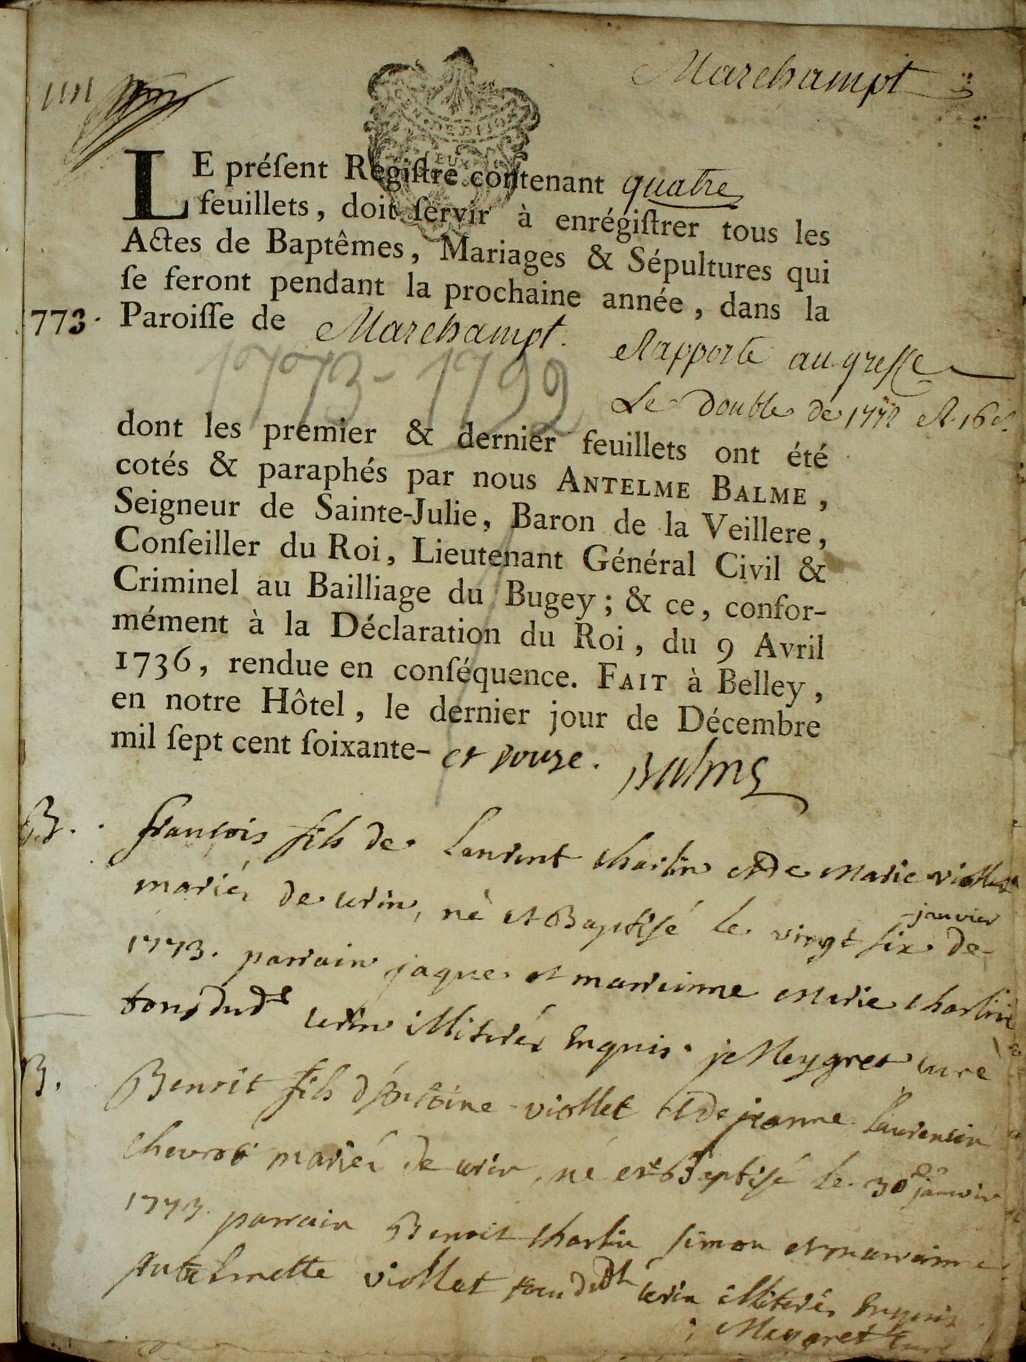 Marchampt
LE préſent Regiſtre contenant quatre
feuillets, doit ſervir à enrégiſtrer tous les
Actes de Baptêmes, Mariages & Sépultures qui
ſe feront pendant la prochaine année, dans la
773. Paroiſſe de Marchampt.
Rapporté au greffe
Le double de 1772
1773-1792
dont les premier & dernier feuillets ont été
cotés & paraphés par nous ANTELME BALME,
Seigneur de Sainte-Julie, Baron de la Veillere,
Conſeiller du Roi, Lieutenant Général Civil &
Criminel au Bailliage du Bugey; & ce, confor-
mément à la Déclaration du Roi, du 9 Avril
1736, rendue en conſéquence. FAIT à Belley,
en notre Hôtel, le dernier jour de Décembre
mil ſept cent ſoixante- et douze. Balme
B. françois fils de Laurent charlin et de marie viollet
mariés de cerin, né et Baptisé le vingt six janvier de
1773. parrain jaque et marrainne marie charlin
tous dud cerin illiterés Enquis. je Meygret curé
B. Benoit fils d'antoine viollet et de jeanne Laurencin
mariés de cerin, né et Baptisé le 30 janvier
1773. parrain Benoit charlin simon et marraine
Antelmette viollet tous dud cerin illiterés Enquis
Meygret curé